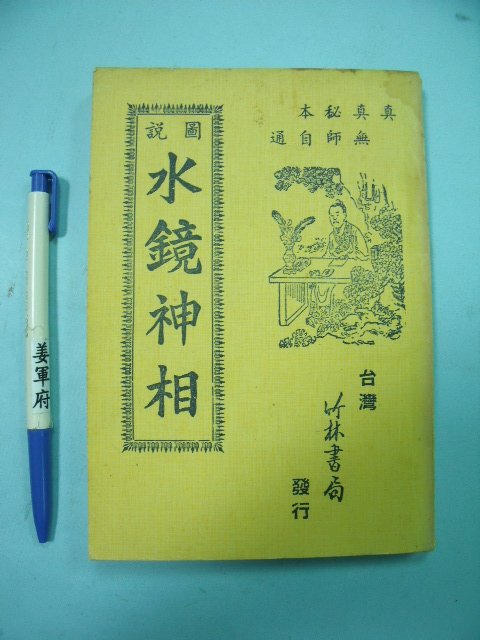 真真秘本
無師自通
圖說
水鏡神相
台灣
竹林書局
發行
姜軍府